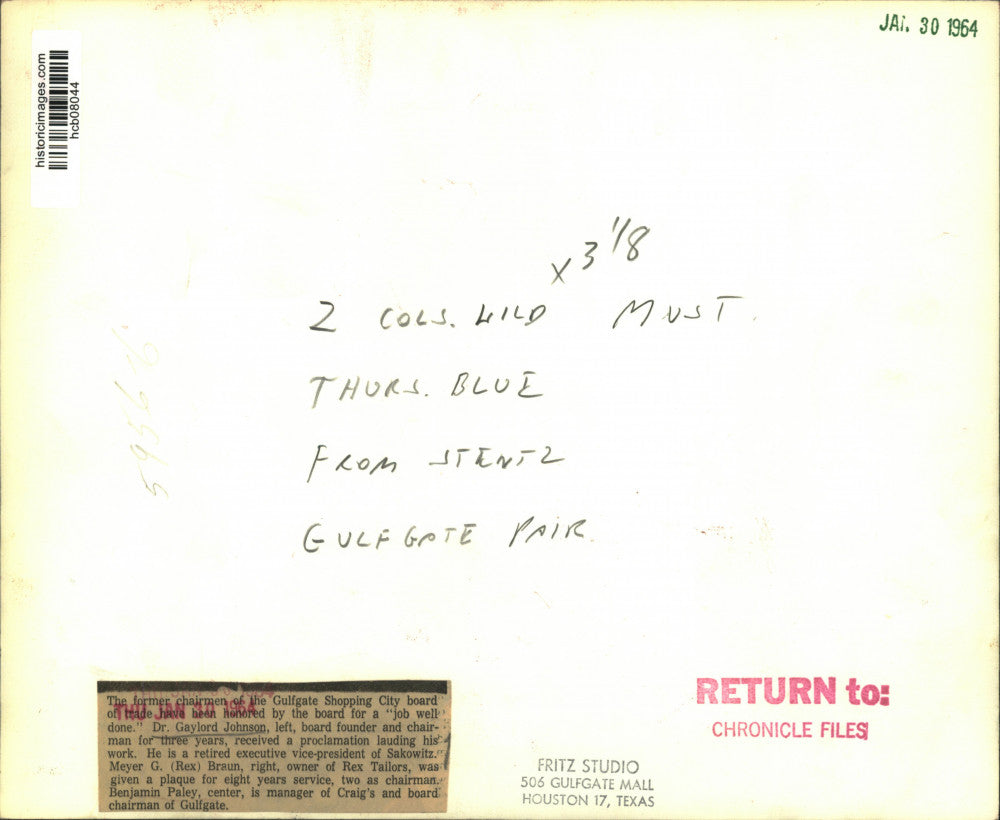 JAN. 30 1964
historicimages.com
hcb08044
x 3 1/8
2 COLS. WILD MUST.
THURS. BLUE
FROM STENTZ
GULFGATE PAIR
The former chairmen of the Gulfgate Shopping City board
of trade have been honored by the board for a "job well
done." Dr. Gaylord Johnson, left, board founder and chair-
man for three years, received a proclamation lauding his
work. He is a retired executive vice-president of Sakowitz.
Meyer G. (Rex) Braun, right, owner of Rex Tailors, was
given a plaque for eight years service, two as chairman.
Benjamin Paley, center, is manager of Craig's and board
chairman of Gulfgate.
THU JAN 30 1964
RETURN to:
CHRONICLE FILES
FRITZ STUDIO
506 GULFGATE MALL
HOUSTON 17, TEXAS